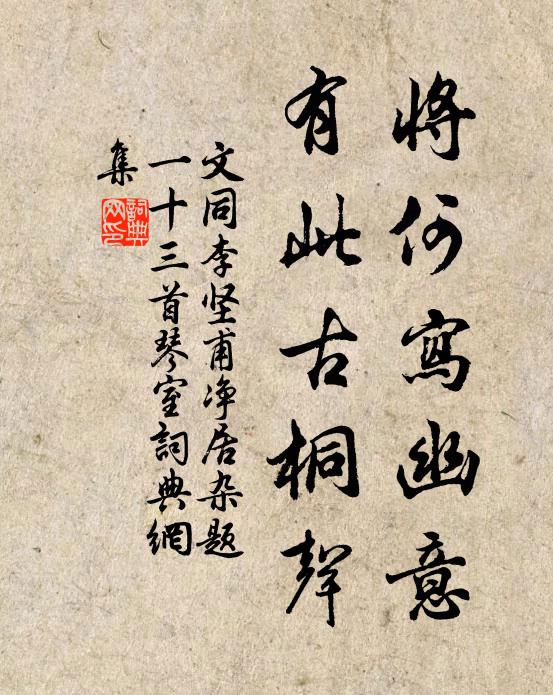 將何寫幽意
有此古桐聲
文同李坚甫净居杂题
一十三首琴室詞典網
集
詞典
网印